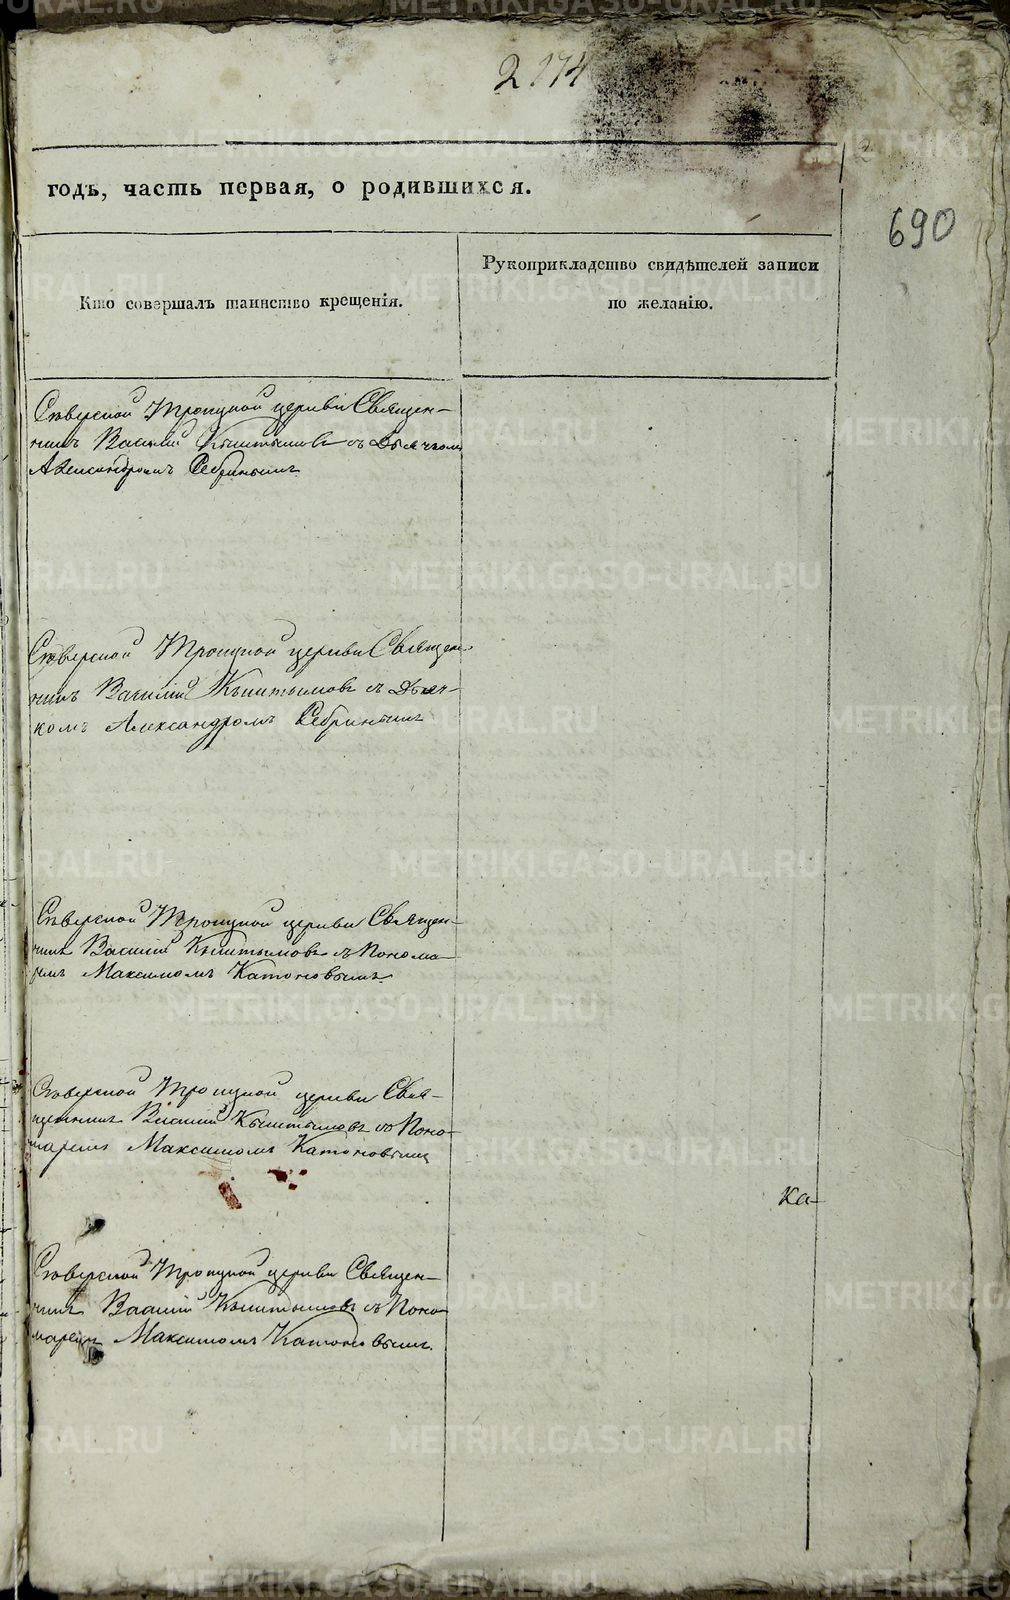 2 174
годъ, часть первая, о родившихся.
690
Кто совершалъ таинство крещенія.
Рукоприкладство свидѣтелей записи
по желанію.
Сѣверской Троицкой церкви Священ-
никъ Василій Кыштымовъ съ Дьячкомъ
Александромъ Ребринымъ
Сѣверской Троицкой церкви Священ-
никъ Василій Кыштымовъ съ Дьяч-
комъ Александромъ Ребринымъ
Сѣверской Троицкой церкви Священ-
никъ Василій Кыштымовъ съ Понома-
ремъ Максимомъ Катоновымъ
Сѣверской Троицкой церкви Свя-
щенникъ Василій Кыштымовъ съ Поно-
маремъ Максимомъ Катоновымъ
Ка-
Сѣверской Троицкой церкви Священ-
никъ Василій Кыштымовъ съ Поно-
маремъ Максимомъ Катоновымъ.
METRIKI.GASO-URAL.RU